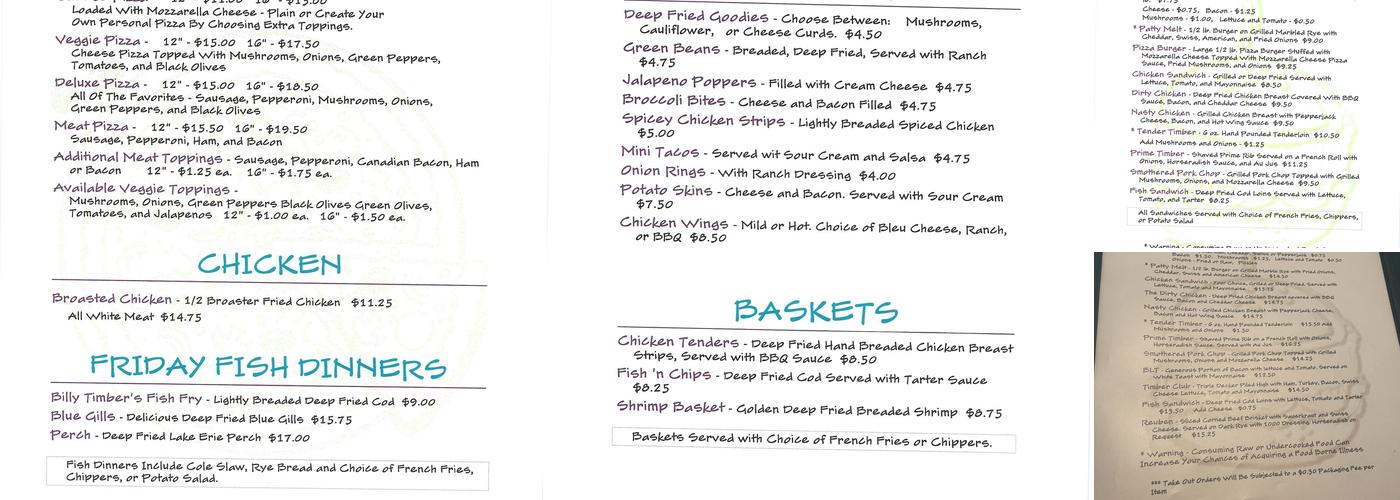 Loaded With Mozzarella Cheese - Plain or Create Your
Own Personal Pizza By Choosing Extra Toppings.
Veggie Pizza - 12" - $15.00 16" - $17.50
Cheese Pizza Topped With Mushrooms, Onions, Green Peppers,
Tomatoes, and Black Olives
Deluxe Pizza - 12" - $15.00 16" - $18.50
All Of The Favorites - Sausage, Pepperoni, Mushrooms, Onions,
Green Peppers, and Black Olives
Meat Pizza - 12" - $15.50 16" - $19.50
Sausage, Pepperoni, Ham, and Bacon
Additional Meat Toppings - Sausage, Pepperoni, Canadian Bacon, Ham
or Bacon 12" - $1.25 ea. 16" - $1.75 ea.
Available Veggie Toppings -
Mushrooms, Onions, Green Peppers Black Olives Green Olives,
Tomatoes, and Jalapenos 12" - $1.00 ea. 16" - $1.50 ea.
CHICKEN
Broasted Chicken - 1/2 Broaster Fried Chicken $11.25
All White Meat $14.75
FRIDAY FISH DINNERS
Billy Timber's Fish Fry - Lightly Breaded Deep Fried Cod $9.00
Blue Gills - Delicious Deep Fried Blue Gills $15.75
Perch - Deep Fried Lake Erie Perch $17.00
Fish Dinners Include Cole Slaw, Rye Bread and Choice of French Fries,
Chippers, or Potato Salad.
Deep Fried Goodies - Choose Between: Mushrooms,
Cauliflower, or Cheese Curds. $4.50
Green Beans - Breaded, Deep Fried, Served with Ranch
$4.75
Jalapeno Poppers - Filled with Cream Cheese $4.75
Broccoli Bites - Cheese and Bacon Filled $4.75
Spicey Chicken Strips - Lightly Breaded Spiced Chicken
$5.00
Mini Tacos - Served wit Sour Cream and Salsa $4.75
Onion Rings - With Ranch Dressing $4.00
Potato Skins - Cheese and Bacon. Served with Sour Cream
$7.50
Chicken Wings - Mild or Hot. Choice of Bleu Cheese, Ranch,
or BBQ $8.50
BASKETS
Chicken Tenders - Deep Fried Hand Breaded Chicken Breast
Strips, Served with BBQ Sauce $8.50
Fish 'n Chips - Deep Fried Cod Served with Tarter Sauce
$8.25
Shrimp Basket - Golden Deep Fried Breaded Shrimp $8.75
Baskets Served with Choice of French Fries or Chippers.
Cheese - $0.75, Bacon - $1.25
Mushrooms - $1.00, Lettuce and Tomato - $0.50
* Patty Melt - 1/2 lb. Burger on Grilled Marbled Rye with
Cheddar, Swiss, American, and Fried Onions $9.00
Pizza Burger - Large 1/2 lb. Pizza Burger Stuffed with
Mozzarella Cheese Topped With Mozzarella Cheese Pizza
Sauce, Fried Mushrooms, and Onions $9.25
Chicken Sandwich - Grilled or Deep Fried Served with
Lettuce, Tomato, and Mayonnaise $8.50
Dirty Chicken - Deep Fried Chicken Breast Covered With BBQ
Sauce, Bacon, and Cheddar Cheese $9.50
Nasty Chicken - Grilled Chicken Breast with Pepperjack
Cheese, Bacon, and Hot Wing Sauce $9.50
* Tender Timber - 6 oz. Hand Pounded Tenderloin $10.50
Add Mushrooms and Onions - $1.25
Prime Timber - Shaved Prime Rib Served on a French Roll with
Onions, Horseradish Sauce, and Au Jus $11.25
Smothered Pork Chop - Grilled Pork Chop Topped with Grilled
Mushrooms, Onions, and Mozzarella Cheese $9.50
Fish Sandwich - Deep Fried Cod Loins Served with Lettuce,
Tomato, and Tarter $8.25
All Sandwiches Served with Choice of French Fries, Chippers,
or Potato Salad
* Patty Melt - 1/2 lb. Burger on Grilled Marble Rye with Fried Onions,
Cheddar, Swiss, and American Cheese $14.50
Chicken Sandwich - Your Choice, Grilled or Deep Fried. Served with
Lettuce, Tomato and Mayonnaise $13.75
The Dirty Chicken - Deep Fried Chicken Breast covered with BBQ
Sauce, Bacon and Cheddar Cheese $14.75
Nasty Chicken - Grilled Chicken Breast with Pepperjack Cheese,
Bacon and Hot Wing Sauce $14.75
* Tender Timber - 6 oz. Hand Pounded Tenderloin $15.50 Add
Mushrooms and Onions $1.50
Prime Timber - Shaved Prime Rib on a French Roll with Onions,
Horseradish Sauce, Served with Au Jus $16.25
Smothered Pork Chop - Grilled Pork Chop Topped with Grilled
Mushrooms, Onions and Mozzarella Cheese $14.25
BLT - Generous Portion of Bacon with lettuce and Tomato, Served on
White Toast with Mayonnaise
Timber Club - Triple Decker Piled High with Ham, Turkey, Bacon, Swiss
Cheese Lettuce, Tomato and Mayonnaise $14.50
Fish Sandwich - Deep Fried Cod Loins with Lettuce, Tomato and Tarter
$13.50 Add Cheese $0.75
Reuben - Sliced Corned Beef Brisket with Sauerkraut and Swiss
Cheese. Served on Dark Rye with 1000 Dressing Horseradish on
Request $15.25
* Warning - Consuming Raw or Undercooked Food Can
Increase Your Chances of Acquiring a Food Borne Illness
*** Take Out Orders Will Be Subjected to a $0.30 Packaging Fee per
Item